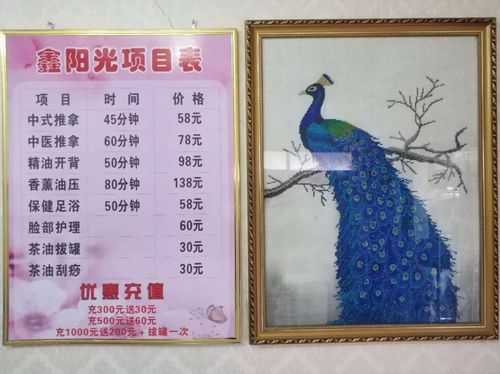 鑫阳光项目表
项目 时间 价格
中式推拿 45分钟 58元
中医推拿 60分钟 78元
精油开背 50分钟 98元
香薰油压 80分钟 138元
保健足浴 50分钟 58元
脸部护理 60元
茶油拔罐 30元
茶油刮痧 30元
优惠充值
充300元送30元
充500元送60元
充1000元送200元+拔罐一次